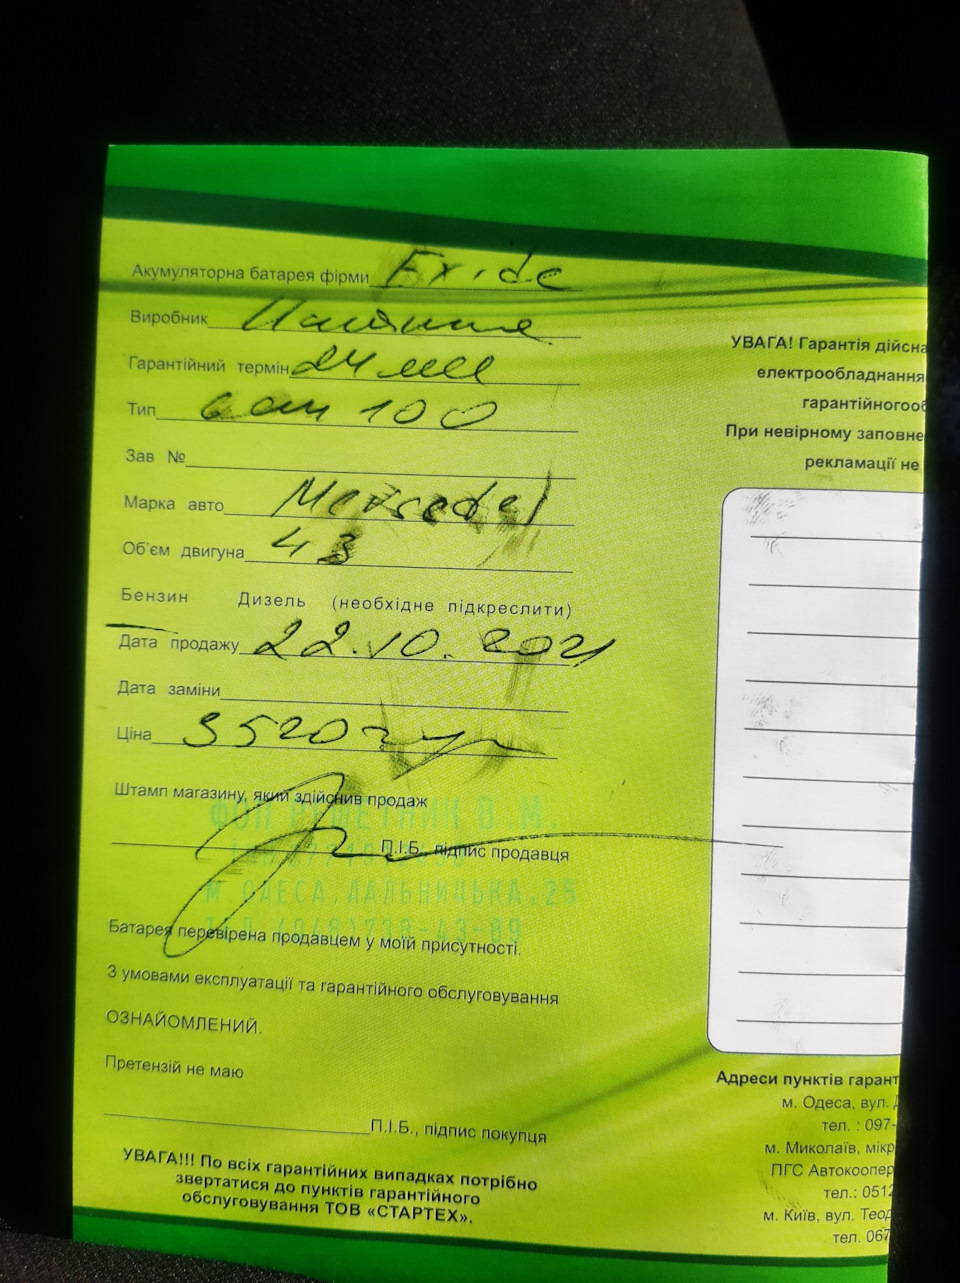 Акумуляторна батарея фірми Exide
Виробник
Гарантійний термін 24
Тип 6 ст 100
Зав №
Марка авто Mercedes
Об'єм двигуна 43
Бензин Дизель (необхідне підкреслити)
Дата продажу 22.10.2021
Дата заміни
Ціна 3520 грн
Штамп магазину, який здійснив продаж
ФОП РЕШЕТНИК В М.
П.І.Б. підпис продавця
М.ОДЕСА,ДАЛЬНИЦЬКА,25
Батарея перевірена продавцем у моїй присутності.
З умовами експлуатації та гарантійного обслуговування
ОЗНАЙОМЛЕНИЙ.
Претензій не маю
П.І.Б., підпис покупця
УВАГА!!! По всіх гарантійних випадках потрібно
звертатися до пунктів гарантійного
обслуговування ТОВ «СТАРТЕХ».
УВАГА! Гарантія дійсна
електрообладнання
гарантійногооб
При невірному заповне
рекламації не
Адреси пунктів гарант
м. Одеса, вул.
тел. : 097-
м. Миколаїв, мікр
ПГС Автокоопер
тел.: 0512
м. Київ, вул. Теод
тел. 067